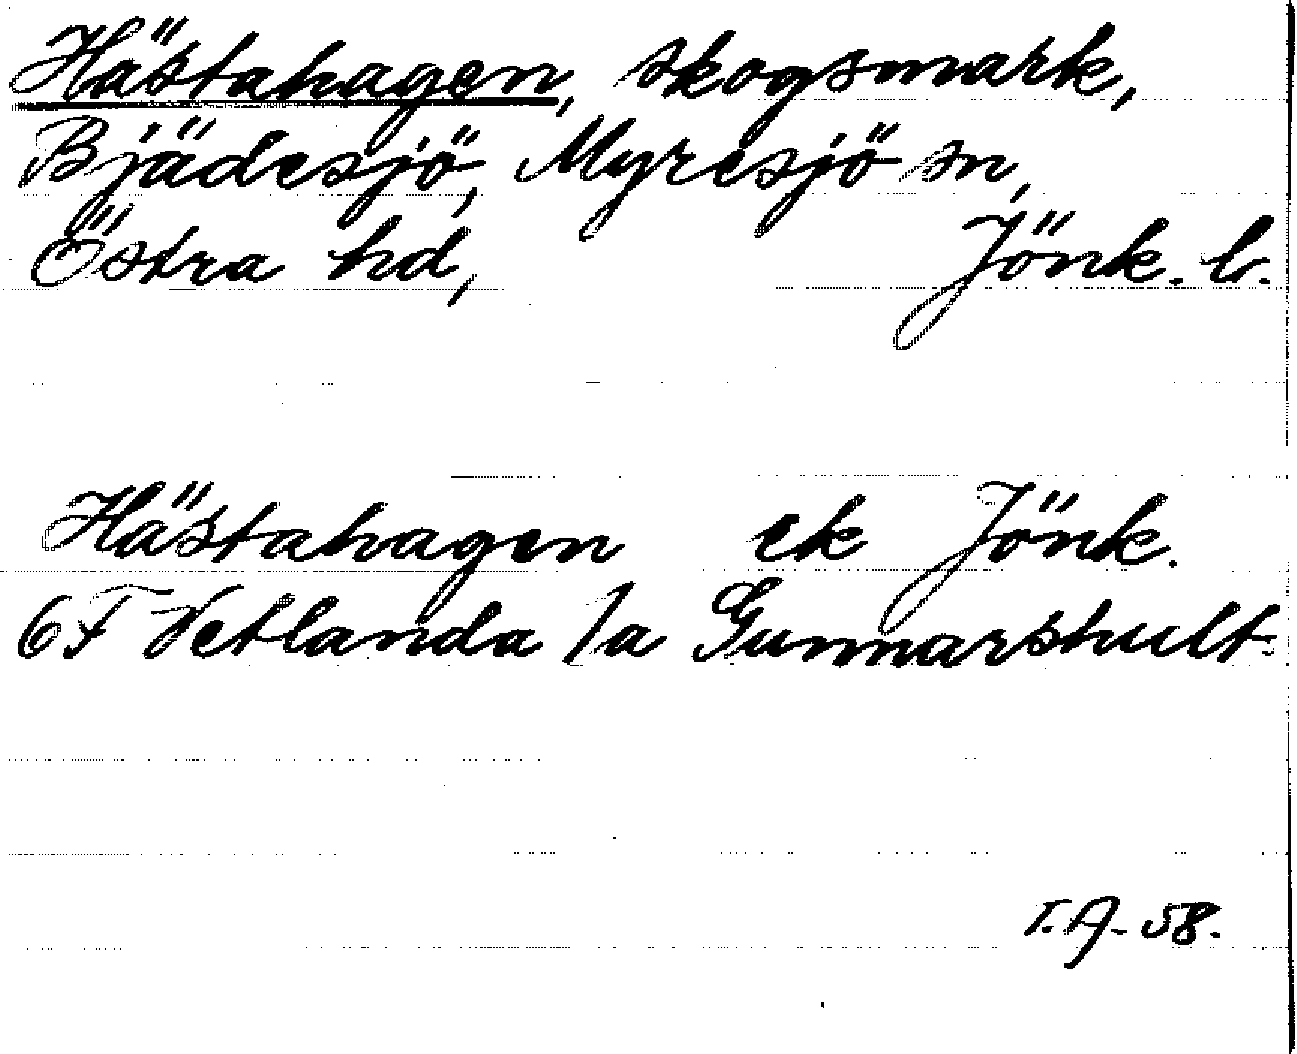 Hästahagen, skogsmark,
Bjädesjö, Myresjö sn,
Östra hd, Jönk. l.
Hästahagen ek Jönk.
6F Vetlanda 1a Gunnarshult
T.A. 58.